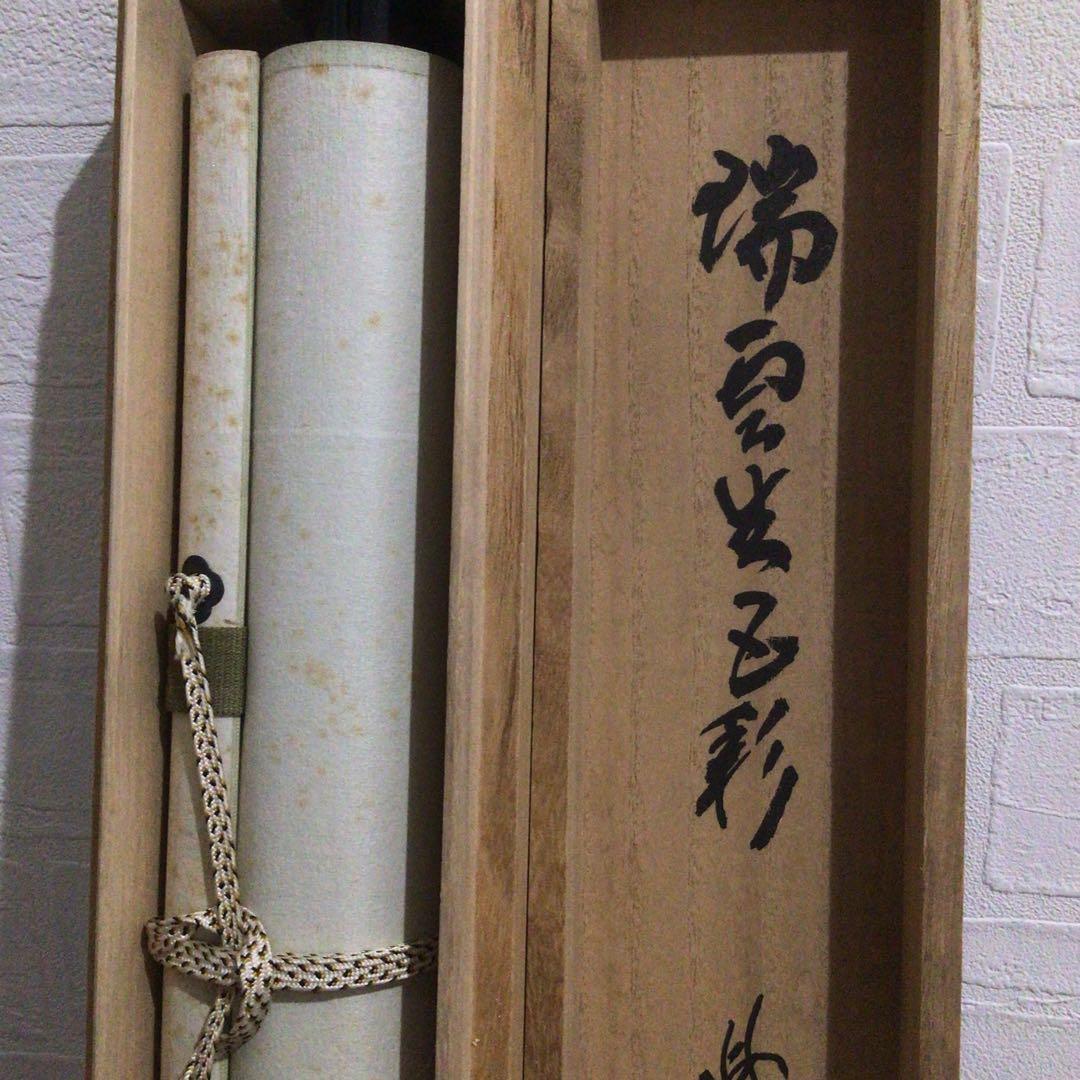 瑞雲生五彩